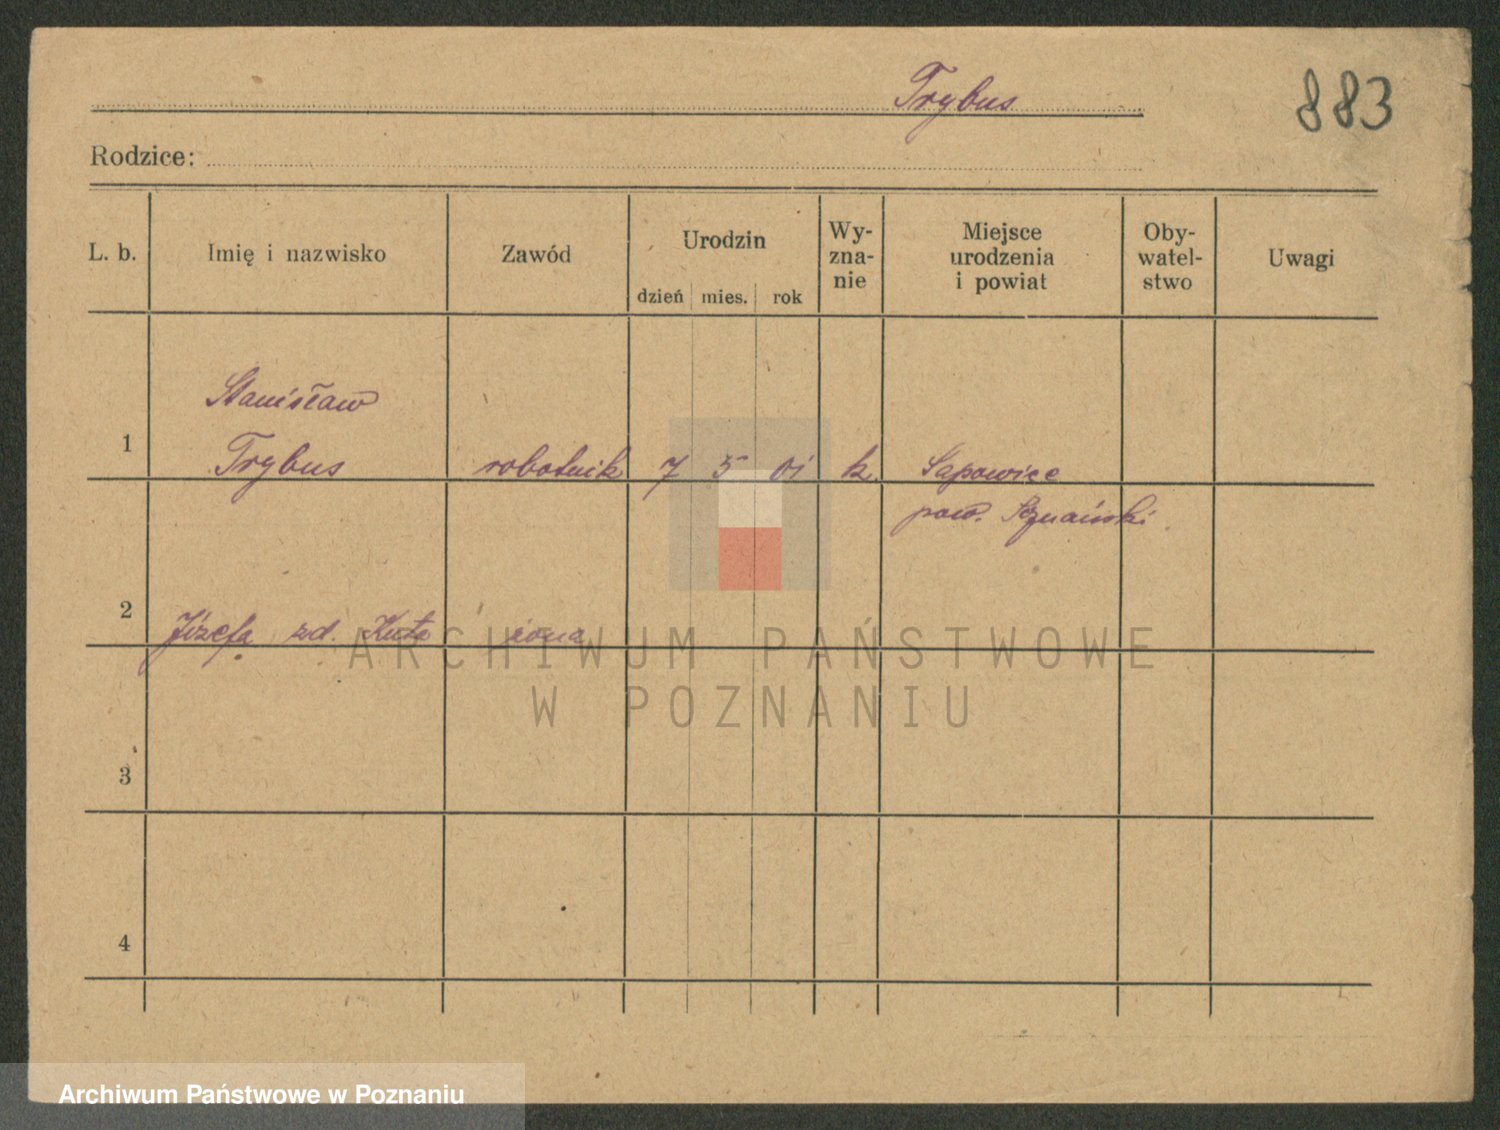 Trybus
883
Rodzice:
L. b.
Imię i nazwisko
Zawód
Urodzin
dzień mies. rok
Wy-
zna-
nie
Miejsce
urodzenia
i powiat
Oby-
watel-
stwo
Uwagi
Stanisław
1 Trybus robotnik 7 5 01 k. Sapowice
pow. Poznański
2 Józefa zd. żona
3
4
ARCHIWUM PAŃSTWOWE
W POZNANIU
Archiwum Państwowe w Poznaniu